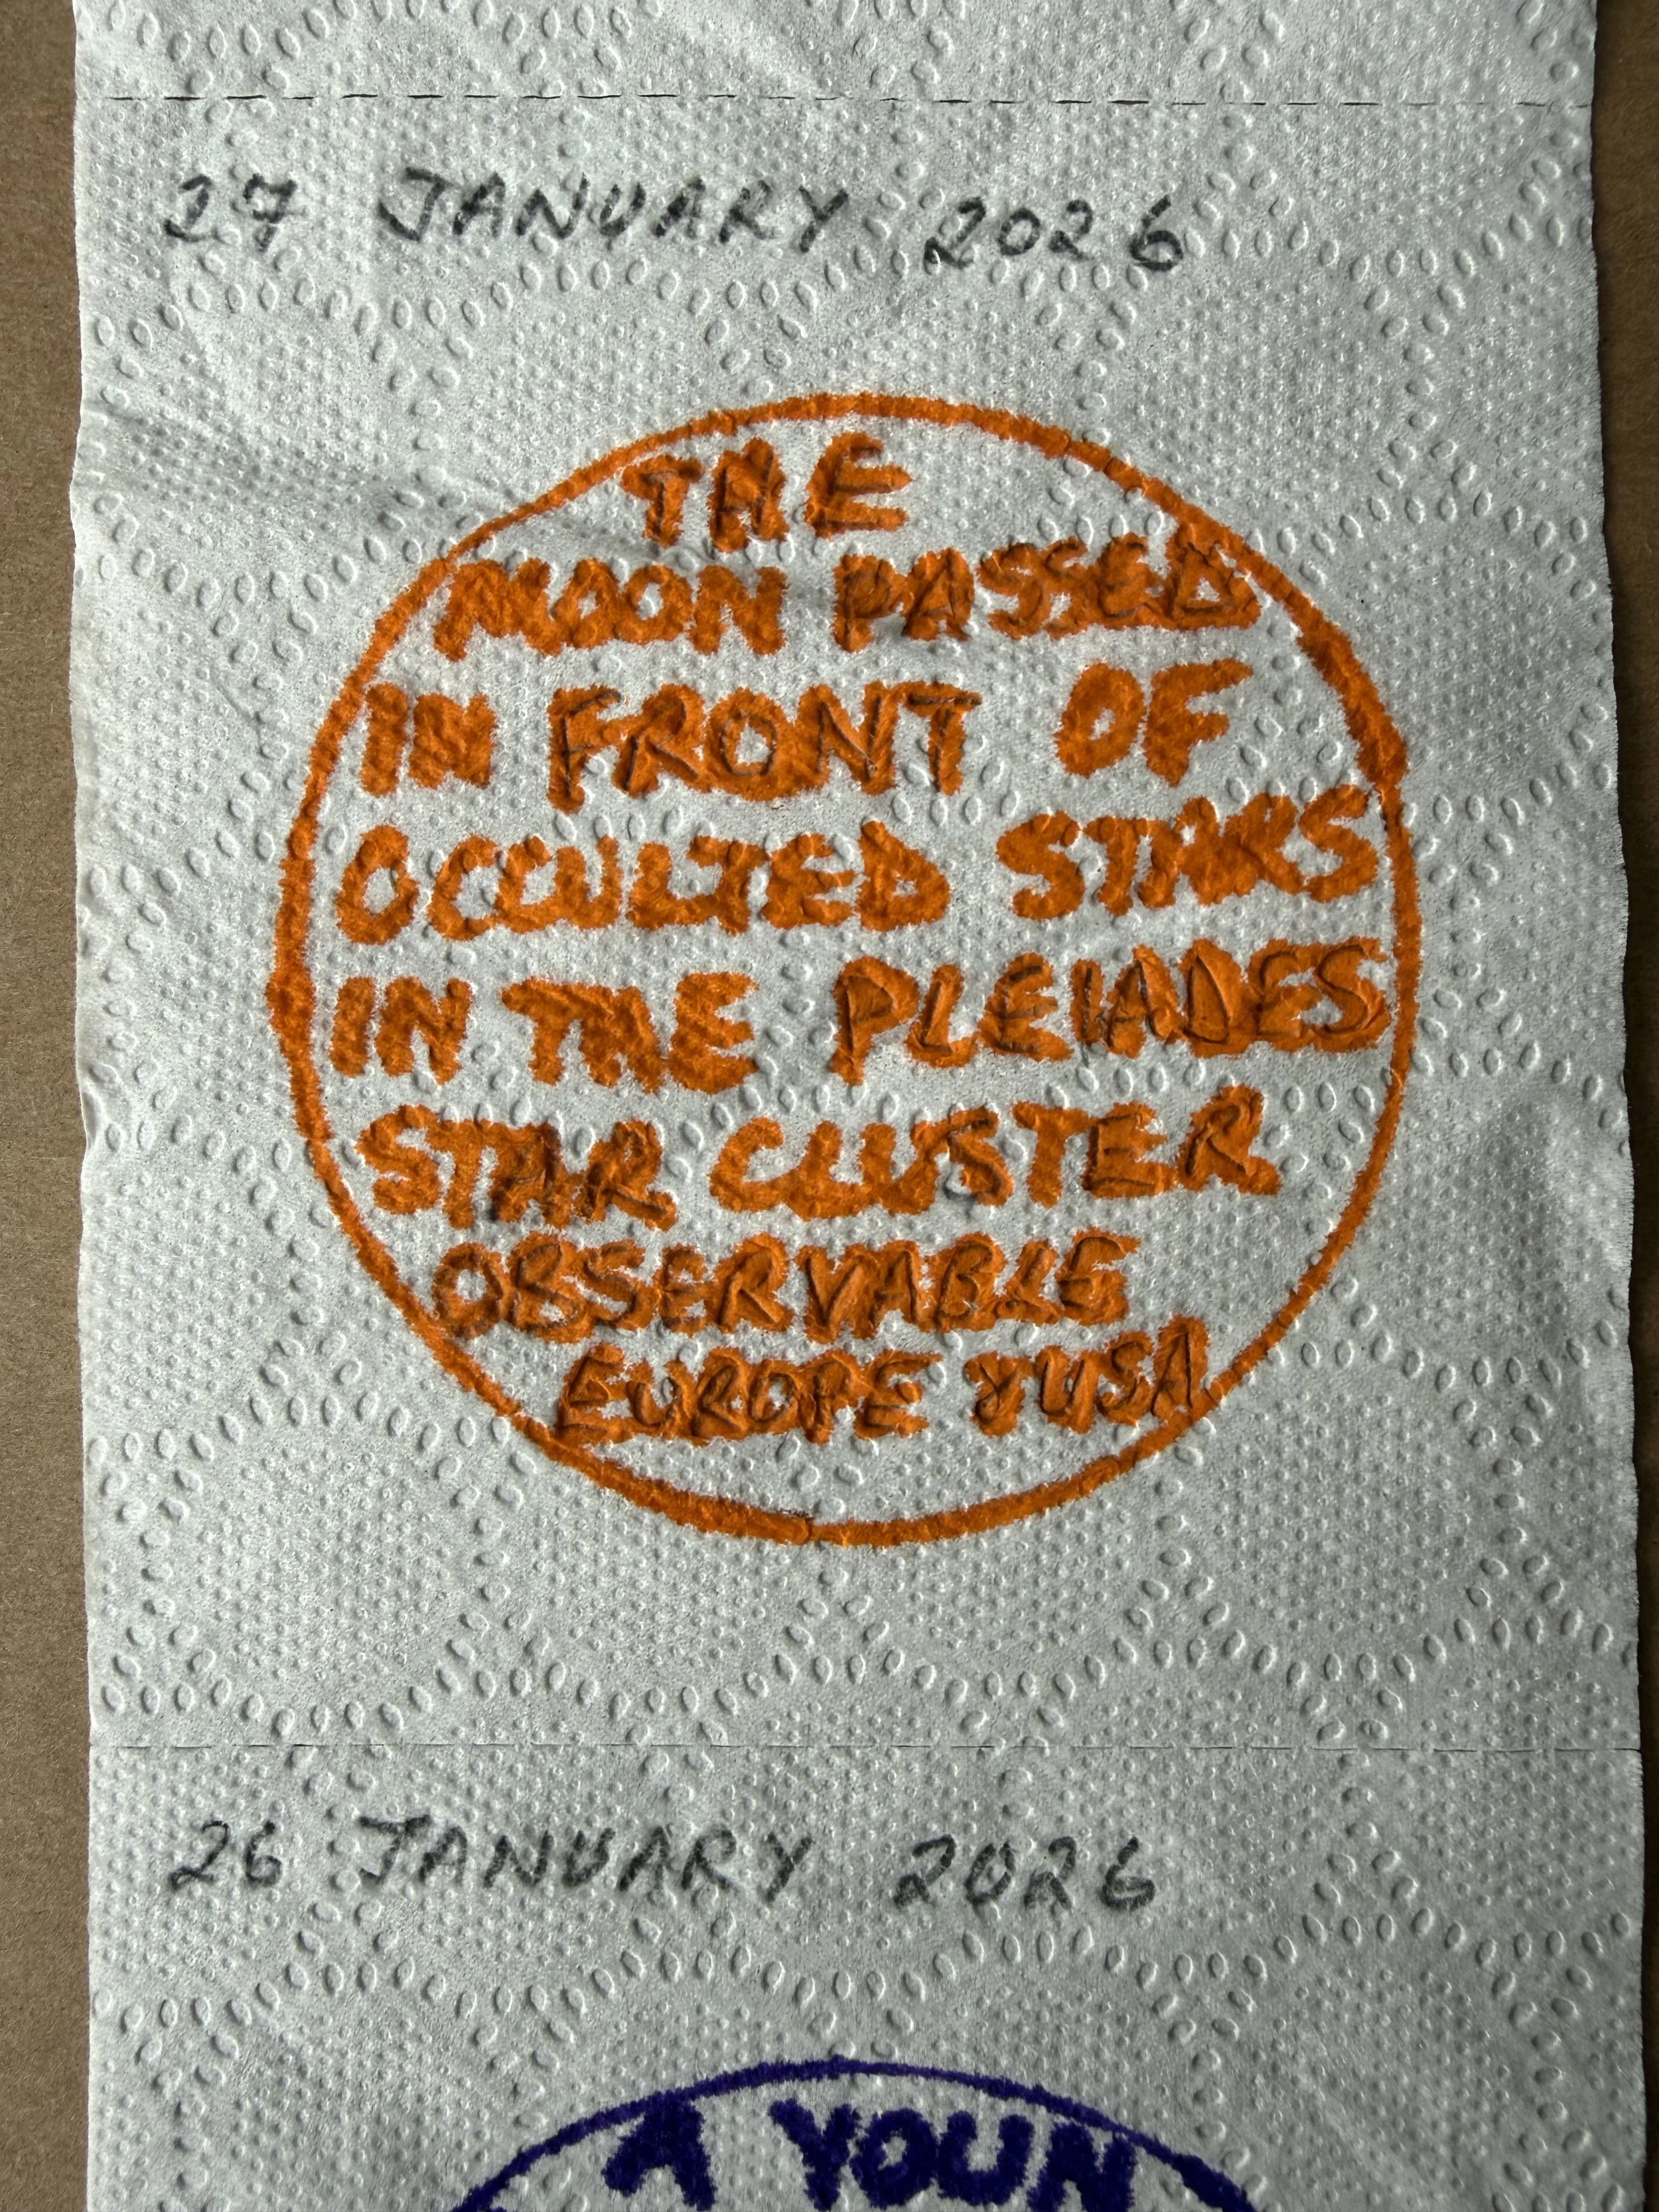 27 JANUARY 2026
THE
MOON PASSED
IN FRONT OF
OCCULTED STARS
IN THE PLEIADES
STAR CLUSTER
OBSERVABLE
EUROPE & USA
26 JANUARY 2026
A YOUN